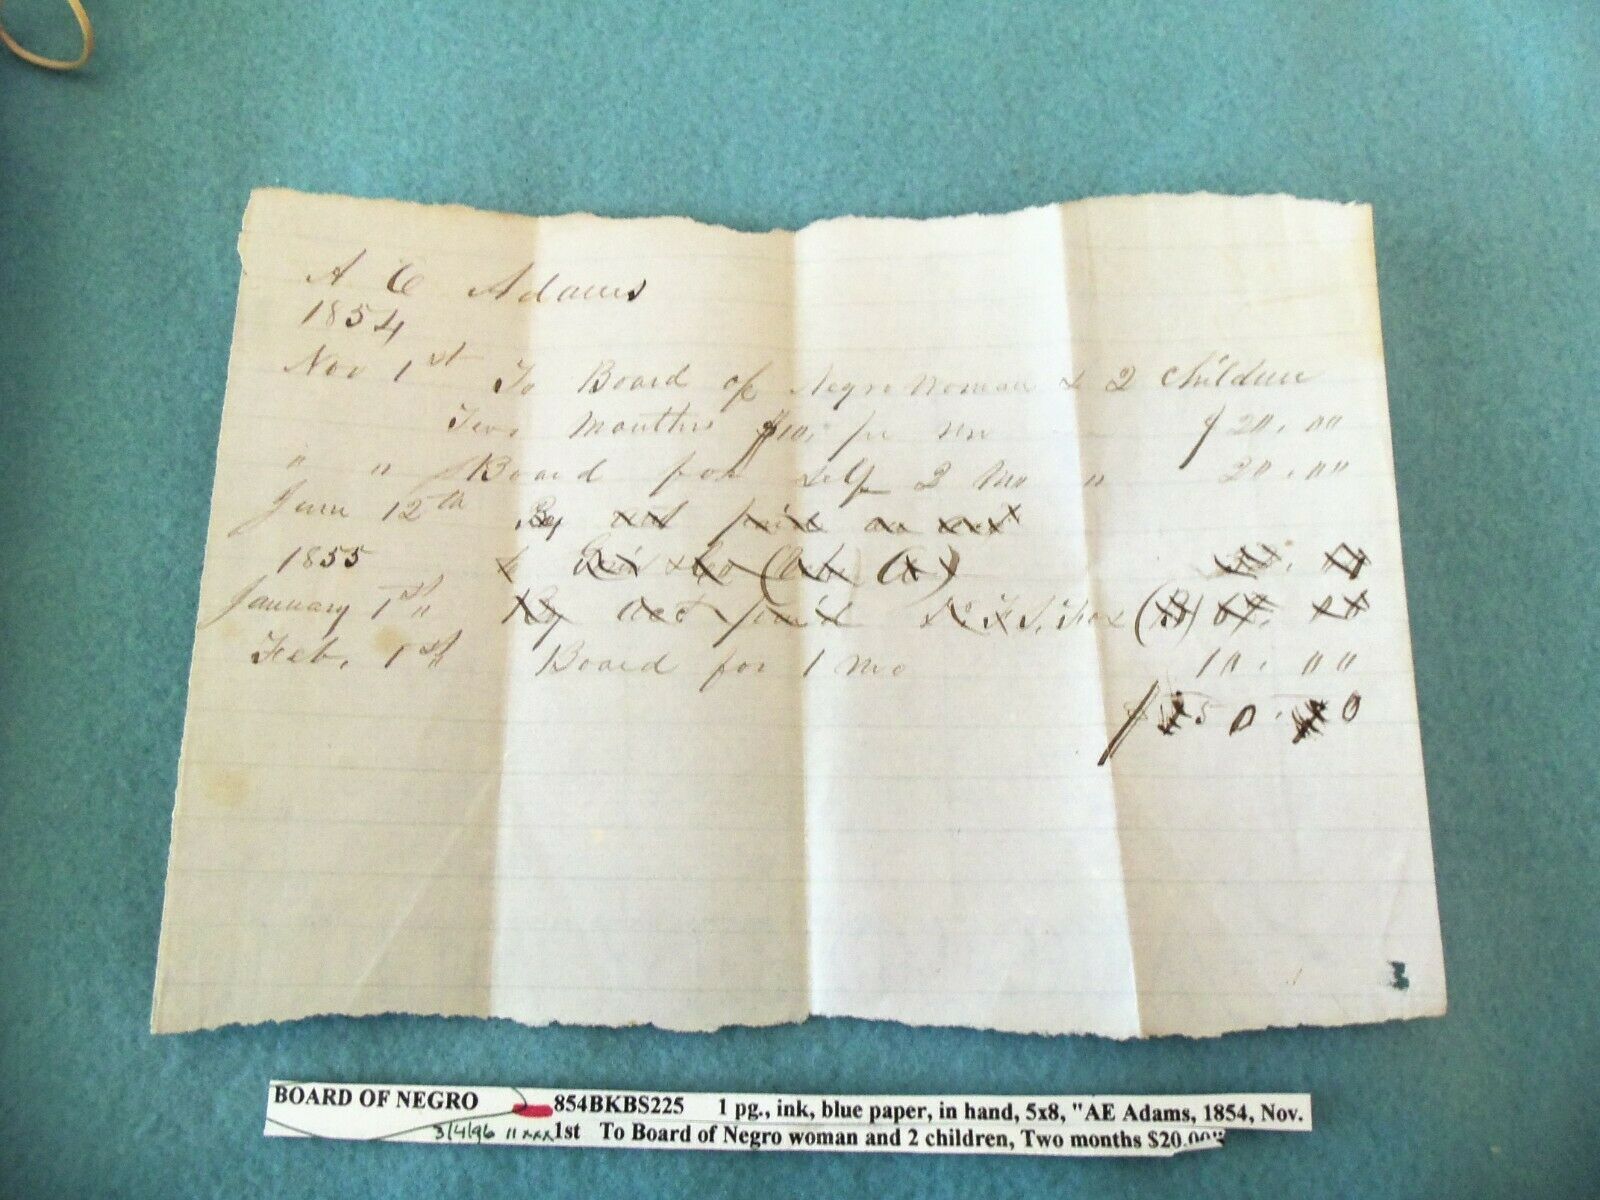 A E Adams
1854
Nov 1st To Board of Negro Woman & 2 Children
Two Months $10. pr mo $ 20.00
" " Board for self 2 Mo " 20.00
12th By paid
1855
January 1st " By act paid
Feb. 1st Board for 1 Mo 10.00
$ 50. 0
BOARD OF NEGRO 854BKBS225 1 pg., ink, blue paper, in hand, 5x8, "AE Adams, 1854, Nov.
3/4/96 11xxx 1st To Board of Negro woman and 2 children, Two months $20.00"